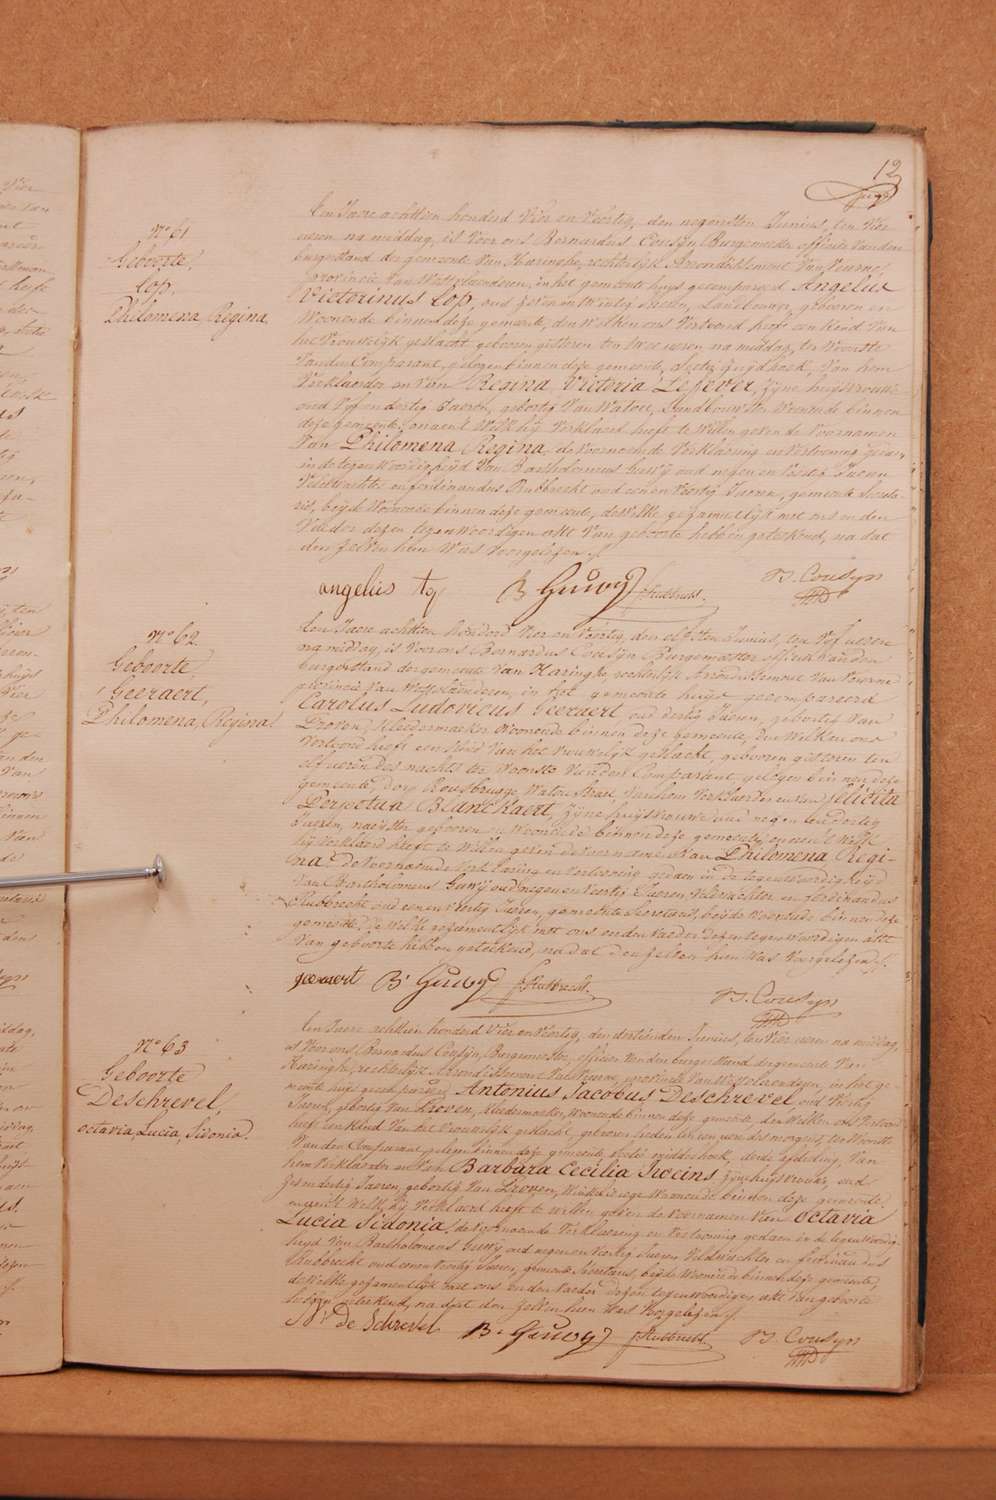 12
N° 61
Geboorte,
Top,
Philomena Regina.
Den Jaere achttien honderd vier en veertig, den negensten Junius, ten vier
ueren na middag, is voor ons Bernardus Cousyn Burgemeester officier van den
burgerstand der gemeente van Haringhe, rechterlijk Arrondissement van Veurne,
provincie van Westvlaenderen, in het gemeente huys gecompareerd Angelus
Victorinus Top, oud en twintig Jaeren, Landbouwer, geboren en
Woonende binnen deze gemeente, den welken ons vertoond heeft een kind van
het vrouwelijk geslacht, geboren gisteren ten twee ueren na middag, ter woonste
van den Comparant, gelegen binnen deze gemeente, van hem
Verklaerder en van Regina Victoria Lefever, zijne huysvrouw
oud vijf en dertig Jaeren, geboortig van Watou, Landbouwster woonende binnen
deze gemeente, en aen 't welk hij verklaerd heeft te willen geven de voornamen
van Philomena Regina, de voornoemde verklaering en vertooning gedaen
in de tegenwoordigheyd van Bartholomeus Guwij oud negen en veertig Jaeren
Veldwachter en ferdinandus Rubbrecht oud een en veertig Jaeren, gemeente Secreta-
ris, beyde woonende binnen deze gemeente, dewelke gezamentlijk met ons en den
Vader dezen tegenwoordigen akt van geboorte hebben geteekend, na dat
den zelven hun was voorgelezen
angelus top B Guwy f Rubbrecht B. Cousyn
N° 62
Geboorte
Geeraert,
Philomena, Regina.
Den Jaere achttien honderd vier en veertig, den elfsten Junius, ten vijf ueren
na middag, is voor ons Bernardus Cousyn Burgemeester officier van den
burgerstand der gemeente van Haringhe, rechterlijk Arrondissement van Veurne
provincie van Westvlaenderen, in het gemeente huys gecompareerd
Carolus Ludovicus Geeraert, oud dertig Jaeren, geboortig van
Proven, Kleermaeker woonende binnen deze gemeente, den welken ons
vertoond heeft een kind van het vrouwelijk geslacht, geboren gisteren ten
elf ueren des nachts ter woonste van den Comparant, gelegen binnen deze
gemeente, dorp Rousbrugge Watou straet, van hem verklaerder en van felicita
Perpetua Blanckaert, zijne huysvrouwe oud negen en dertig
Jaeren, naeyster geboren en woonende binnen deze gemeente, en aen 't welk
hij verklaerd heeft te willen geven de voornamen van Philomena Regi-
na, de voornoemde verklaering en vertooning gedaen in de tegenwoordigheyd
van Bartholomeus Guwij oud negen en veertig Jaeren, veldwachter en ferdinandus
Rubbrecht oud een en veertig Jaeren, gemeente Secretaris, beijde woonende binnen deze
gemeente, dewelke gezamentlijk met ons en den vader dezen tegenwoordigen akt
van geboorte hebben geteekend, na dat den zelven hun was voorgelezen
geeraert B. Guwy f Rubbrecht B. Cousyn
N° 63
Geboorte
Deschrevel,
octavia, Lucia, Sidonia.
Den Jaere achttien honderd vier en veertig, den dertienden Junius, ten vier ueren na middag,
is voor ons Bernardus Cousyn, Burgemeester, officier van den burgerstand der gemeente van
Haringhe, rechterlijk Arrondissement van Veurne, provincie van Westvlaenderen, in het ge-
meente huys gecompareerd Antonius Jacobus Deschrevel, oud veertig
Jaeren, geboortig van Proven, Kleermaeker, woonende binnen deze gemeente, den welken ons vertoond
heeft een kind van het vrouwelijk geslacht, geboren heden ten een uere des morgens, ter woonste
van den Comparant gelegen binnen deze gemeente middelhoek, derde afdeeling, van
hem verklaerder en van Barbara Cecilia Sweins, zijne huysvrouwe, oud
en dertig Jaeren, geboortig van Proven, Winkelierege woonende binnen deze gemeente
en aen 't welk hij verklaerd heeft te willen geven de voornamen van Octavia
Lucia Sidonia, de voornoemde verklaering en vertooning gedaen in de tegenwoordig-
heyd van Bartholomeus Guwij oud negen en veertig Jaeren Veldwachter en ferdinandus
Rubbrecht oud een en veertig Jaeren, gemeente Secretaris, beyde woonende binnen deze gemeente,
dewelke gezamentlijk met ons en den vader dezen tegenwoordigen akt van geboorte
hebben geteekend, na dat den zelven hun was voorgelezen
De Schrevel B. Guwy f Rubbrecht B. Cousyn